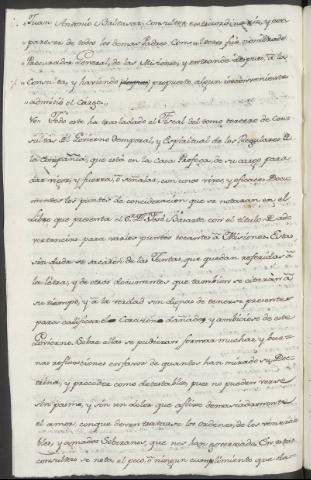 Juan Antonio Baltasar, consultor extraordinario, y con
parecer de todos los demas Padres Consultores fue nombrado
Procurador General, de las Misiones, y entrando despues a la
Consulta, y haviendo propuesto algun inconveniente
admitio el cargo.
Todo esto ha trasladado el Fiscal del tomo tercero de Con-
sultas del Govierno temporal, y Espiritual de los Regulares de
la Compañia, que està en la Casa Profesa, de su cargo para
dar vigor, y fuerza, ò señalar, con unos vivos, y eficaces Docu-
mentos los puntos de concideracion que se notaran en el
libro que presenta el P. Josè con el titulo de ad-
vertencias para varios puntos tocantes à Misiones. Esta-
se sacaràn de las Juntas, que quedan referidas à
la letra, y de otros documentos que tambien se citaràn à
su tiempo, y à la verdad son dignas de tenerse presentes
para calificar el Corazon dañado, y ambicioso de este
Govierno. Sobre ellas se pudieran formar muchas, y bue-
nas reflecciones en favor de quantos han mirado su Doc-
trina, y proceder como detestables, pues no pueden verse
sin pasmo, y sin un dolor que aflixe demasiadamente
el amor, con que deven tratarse los ordenes, de los venera-
bles, y amados Soberanos, que nos han governado. En estas
consultas se nota el poco, ò ningun cumplimiento que da-